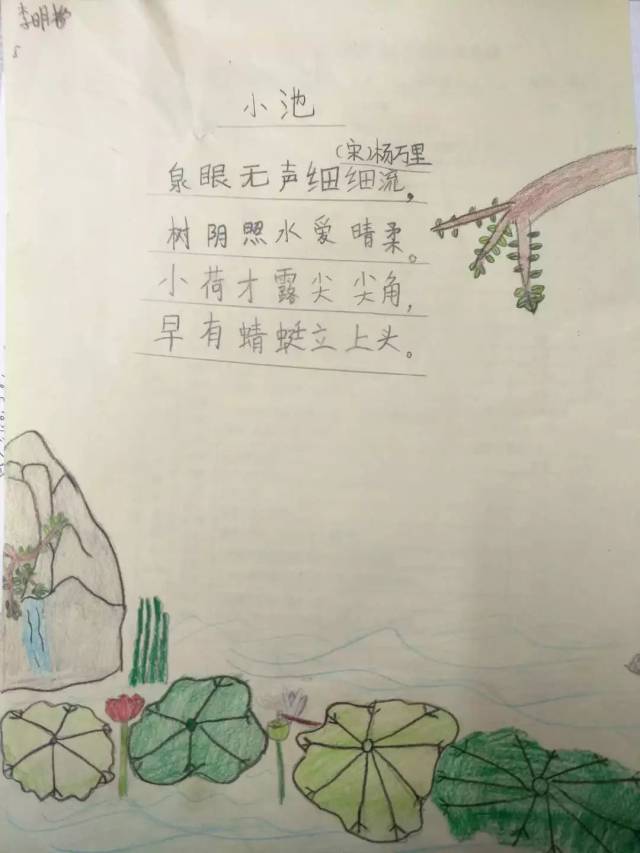 李明
小池
(宋)杨万里
泉眼无声细细流，
树阴照水爱晴柔。
小荷才露尖尖角，
早有蜻蜓立上头。